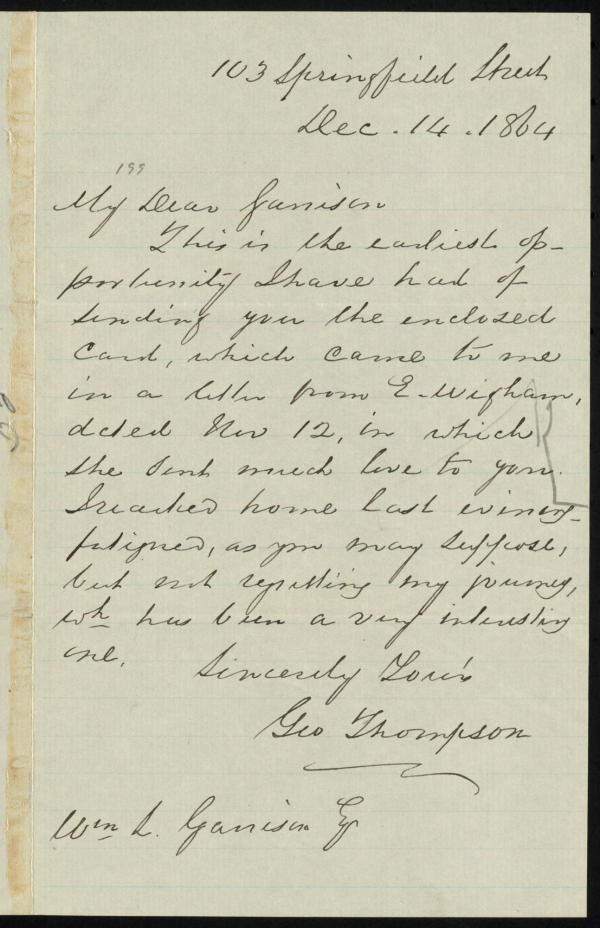 103 Springfield Street
Dec. 14. 1864
199
My Dear Garrison
This is the earliest op-
portunity I have had of
sending you the enclosed
card, which came to me
in a letter from E. Wigham,
dated Nov 12, in which
she sent much love to you.
I reached home last evening
fatigued, as you may suppose,
but not regretting my journey,
wh has been a very interesting
one.
Sincerely Yours
Geo Thompson
Wm L. Garrison Esq